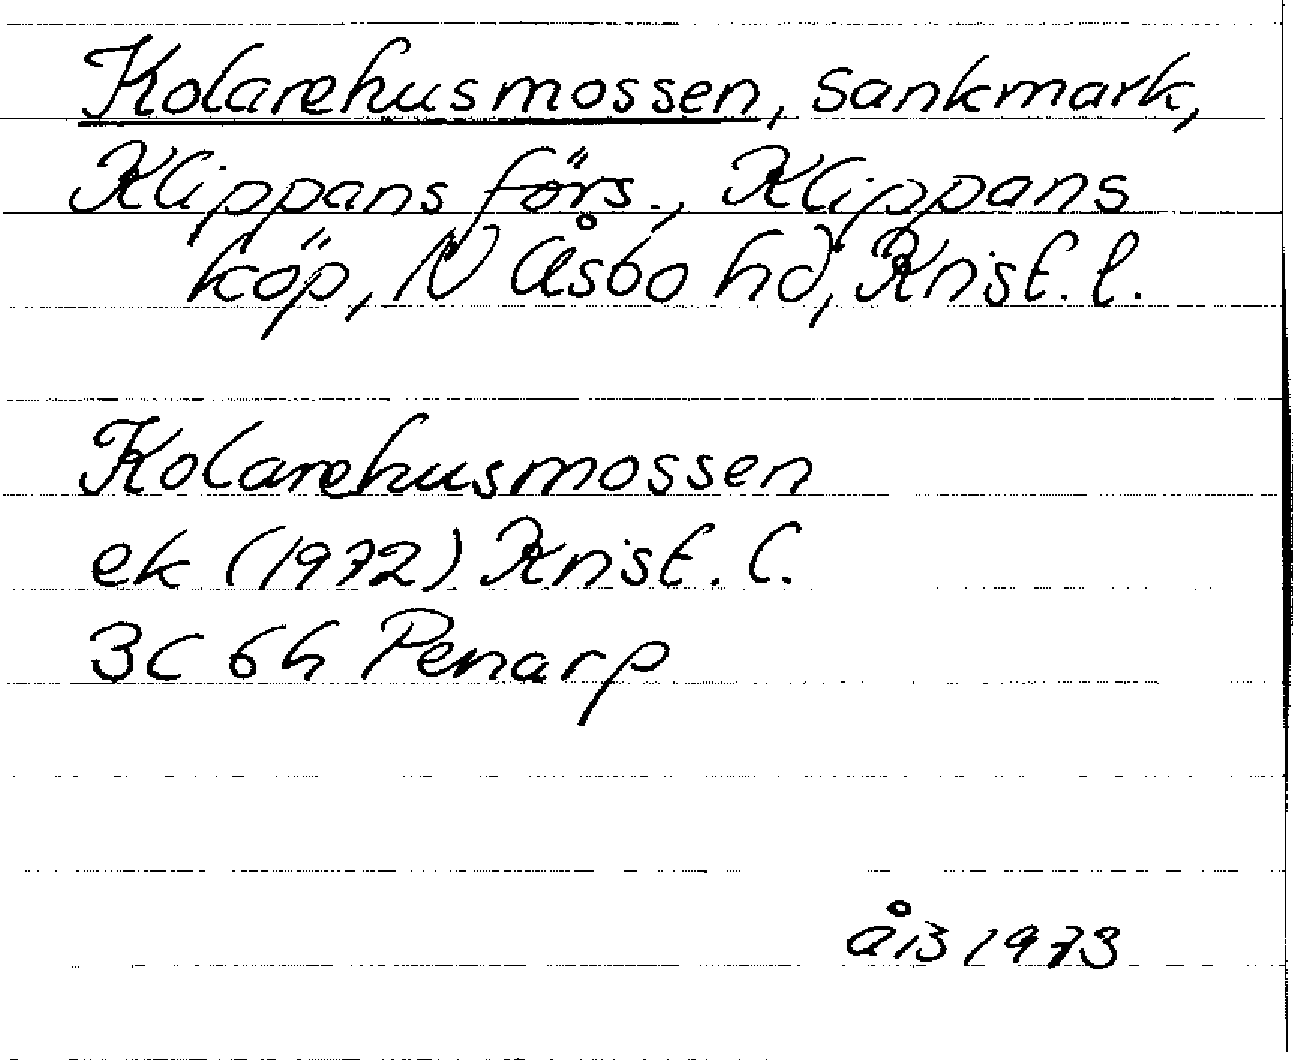 Kolarehusmossen, sankmark,
Klippans förs., Klippans
köp, N Åsbo hd, Krist. l.
Kolarehusmossen
ek (1972) Krist. l.
3C 6h Penarp
åB 1973